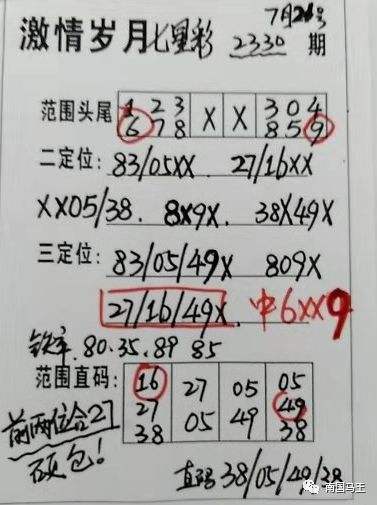 7月28号
激情岁月七星彩 2330 期
范围头尾 1 2 3 X X 3 0 4
6 7 8 8 5 9
二定位: 83/05XX 27/16XX
XX05/38. 8X9X. 38X49X
三定位: 83/05/49X 809X
27/16/49X. 中6XX9
铁率. 80.35.89 85
范围直码: 16 27 05 05
27 05 49 49
38 38
前两位合27
硕包!
直码 38/05/49/38
南国鸟王